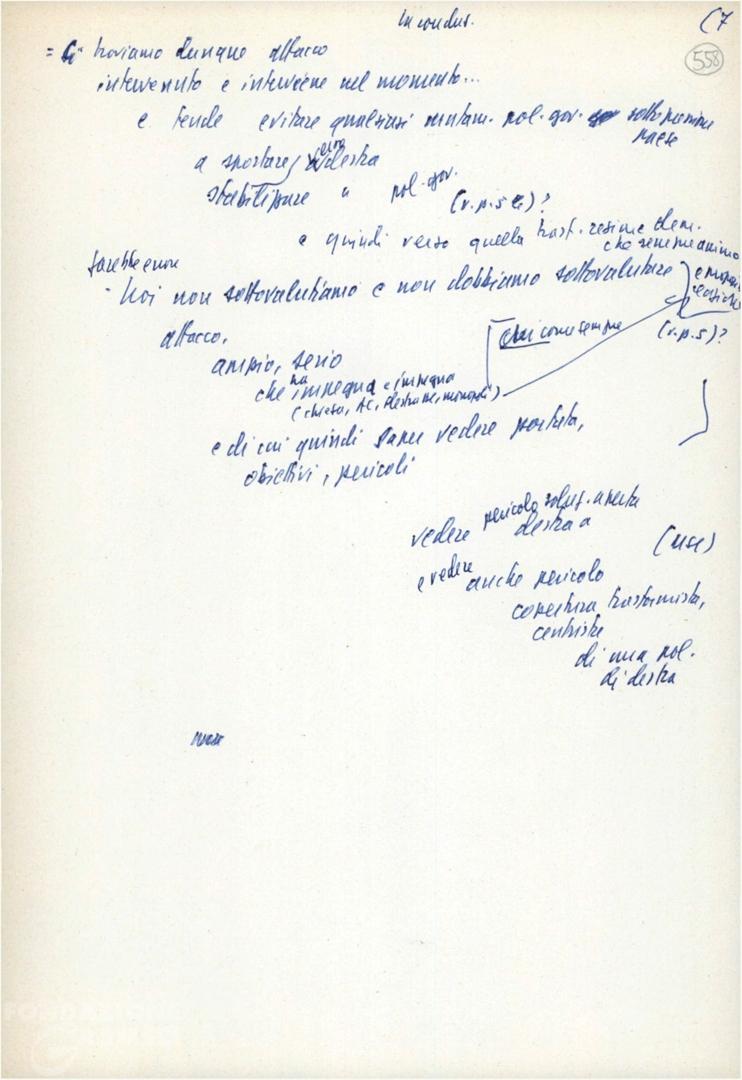 In conclus.
(7
558
= Ci troviamo dunque attacco
intervenuto e interviene nel momento...
e tende evitare qualsiasi mutam. pol. gov.
paese
a spostare verso destra
stabilizzare a pol. gov.
(v.p.s e)?
e quindi verso quella trasf. regime dem.
sarebbe errore
Noi non sottovalutiamo e non dobbiamo sottovalutare
attacco, (v.p.s)?
ampio, serio come sempre
che ha impegna e impegna
(chiesa, AC, destra, monopoli)
e di cui quindi saper vedere portata,
obiettivi, pericoli
vedere pericolo soluz. aperta
destra
e vedere anche pericolo
copertura trasformista,
centrista
di una pol.
di destra
FONDAZIONE
GRAMSCI